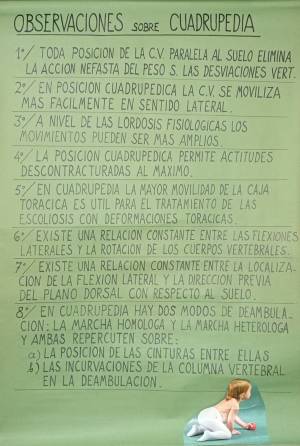 OBSERVACIONES SOBRE CUADRUPEDIA
1º/ TODA POSICION DE LA C.V. PARALELA AL SUELO ELIMINA
LA ACCION NEFASTA DEL PESO S. LAS DESVIACIONES VERT.
2º/ EN POSICION CUADRUPEDICA LA C.V. SE MOVILIZA
MAS FACILMENTE EN SENTIDO LATERAL.
3º/ A NIVEL DE LAS LORDOSIS FISIOLOGICAS LOS
MOVIMIENTOS PUEDEN SER MAS AMPLIOS.
4º/ LA POSICION CUADRUPEDICA PERMITE ACTITUDES
DESCONTRACTURADAS AL MAXIMO.
5º/ EN CUADRUPEDIA LA MAYOR MOVILIDAD DE LA CAJA
TORACICA ES UTIL PARA EL TRATAMIENTO DE LAS
ESCOLIOSIS CON DEFORMACIONES TORACICAS.
6º/ EXISTE UNA RELACION CONSTANTE ENTRE LAS FLEXIONES
LATERALES Y LA ROTACION DE LOS CUERPOS VERTEBRALES.
7º/ EXISTE UNA RELACION CONSTANTE ENTRE LA LOCALIZA-
CION DE LA FLEXION LATERAL Y LA DIRECCION PREVIA
DEL PLANO DORSAL CON RESPECTO AL SUELO.
8º/ EN CUADRUPEDIA HAY DOS MODOS DE DEAMBULA-
CION: LA MARCHA HOMOLOGA Y LA MARCHA HETEROLOGA
Y AMBAS REPERCUTEN SOBRE:
a) LA POSICION DE LAS CINTURAS ENTRE ELLAS
b) LAS INCURVACIONES DE LA COLUMNA VERTEBRAL
EN LA DEAMBULACION.